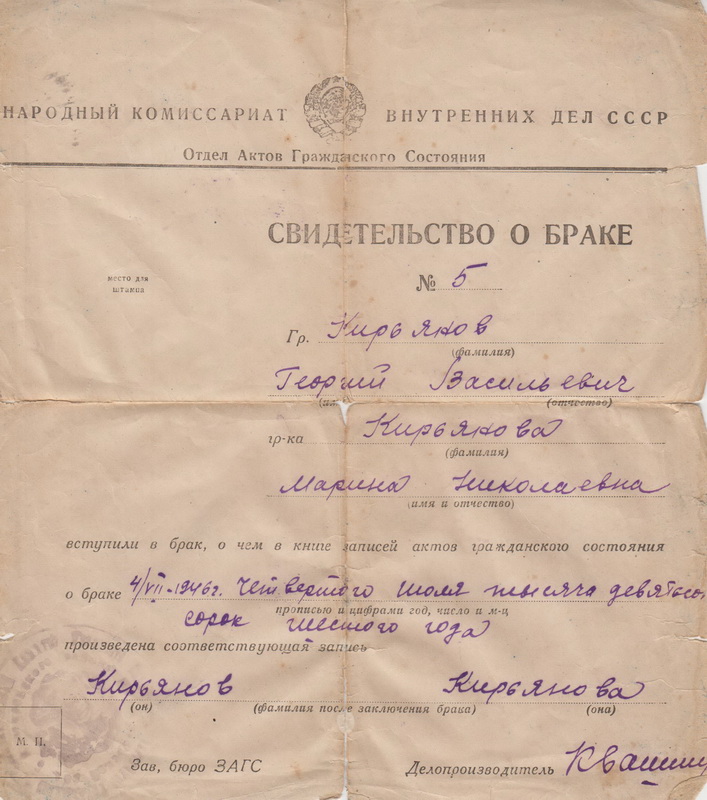 НАРОДНЫЙ КОМИССАРИАТ ВНУТРЕННИХ ДЕЛ СССР
Отдел Актов Гражданского Состояния
СВИДЕТЕЛЬСТВО О БРАКЕ
место для
штампа
№ 5
Гр. Кирьяков
(фамилия)
Георгий Васильевич
(отчество)
гр-ка Кирьякова
(фамилия)
Марина Николаевна
(имя и отчество)
вступили в брак, о чем в книге записей актов гражданского состояния
о браке 4/VII-1946г. Четвертого июля тысяча
прописью и цифрами год, число и м-ц
сорок шестого года
произведена соответствующая запись
Кирьянов Кирьянова
(он) (фамилия после заключения брака) (она)
М. П.
Зав, бюро ЗАГС Делопроизводитель